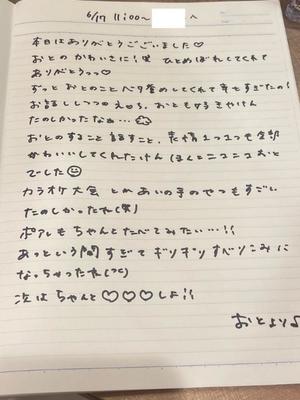 6/17 11:00〜　　へ
本日はありがとうございました♡
おとのかわいさに!!! ひとめぼれしてくれて
ありがとうっっ♡
ずっとおとのことベタ褒めしてくれて幸せすぎたの!
お話ししつつのえっち、おとも好きやけん
たのしかったなぁ…
おとのすること話すこと、表情1つ1つを全部
かわいいしてくれたけん ほんとニコニコおと
でした
カラオケ大会 とめあいの手のやつもすごい
たのしかったね(笑)
ポアレもちゃんとたべてみたい…!!
あっという間すぎてギリギリすべりこみに
なっちゃったね
次はちゃんと♡♡♡しよ!!
おとより♪